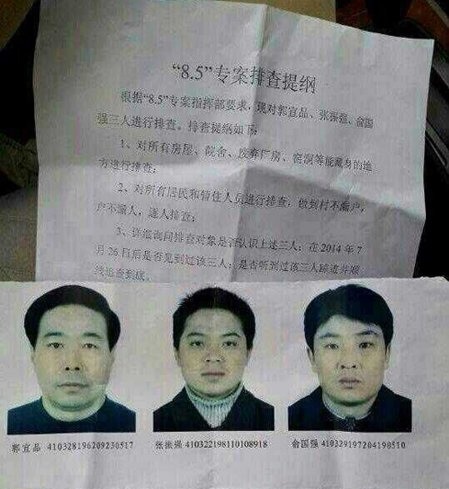 “8.5”专案排查提纲
根据“8.5”专案指挥部要求，现对郭宜品、张振强、俞国
强三人进行排查。排查提纲如下：
1、对所有房屋、院舍、废弃厂房、窑洞等能藏身的地
方进行排查；
2、对所有居民和暂住人员进行排查，做到村不漏户，
户不漏人，逐人排查；
3、详细询问排查对象是否认识上述三人；在 2014 年 7
月 26 日前后是否见到过该三人；是否听到过该三人踪迹并顺
线追查到底。
郭宜品 410328196209230517
张振强 410322198110108918
俞国强 410329197204190510